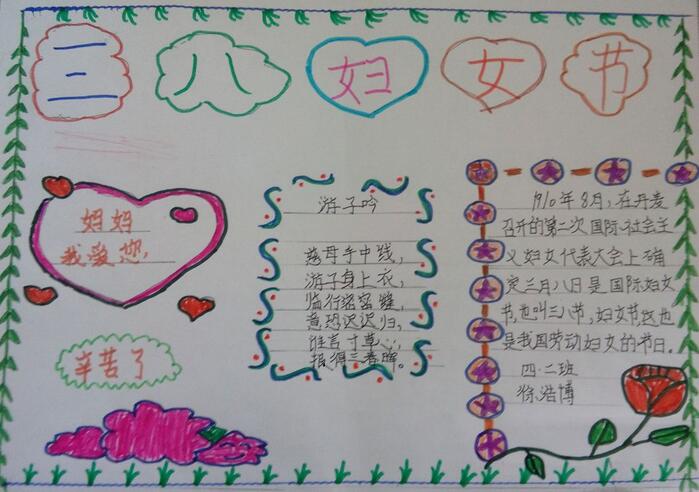 三八妇女节
妈妈
我爱您,
辛苦了
游子吟
慈母手中线,
游子身上衣,
临行密密缝,
意恐迟迟归,
谁言寸草心,
报得三春晖。
1910年8月,在丹麦
召开的第二次国际社会主
义妇女代表大会上确
定三月八日是国际妇女
节,也叫三八节,妇女节,线也
是我国劳动妇女的节日。
四·二班
徐浩博